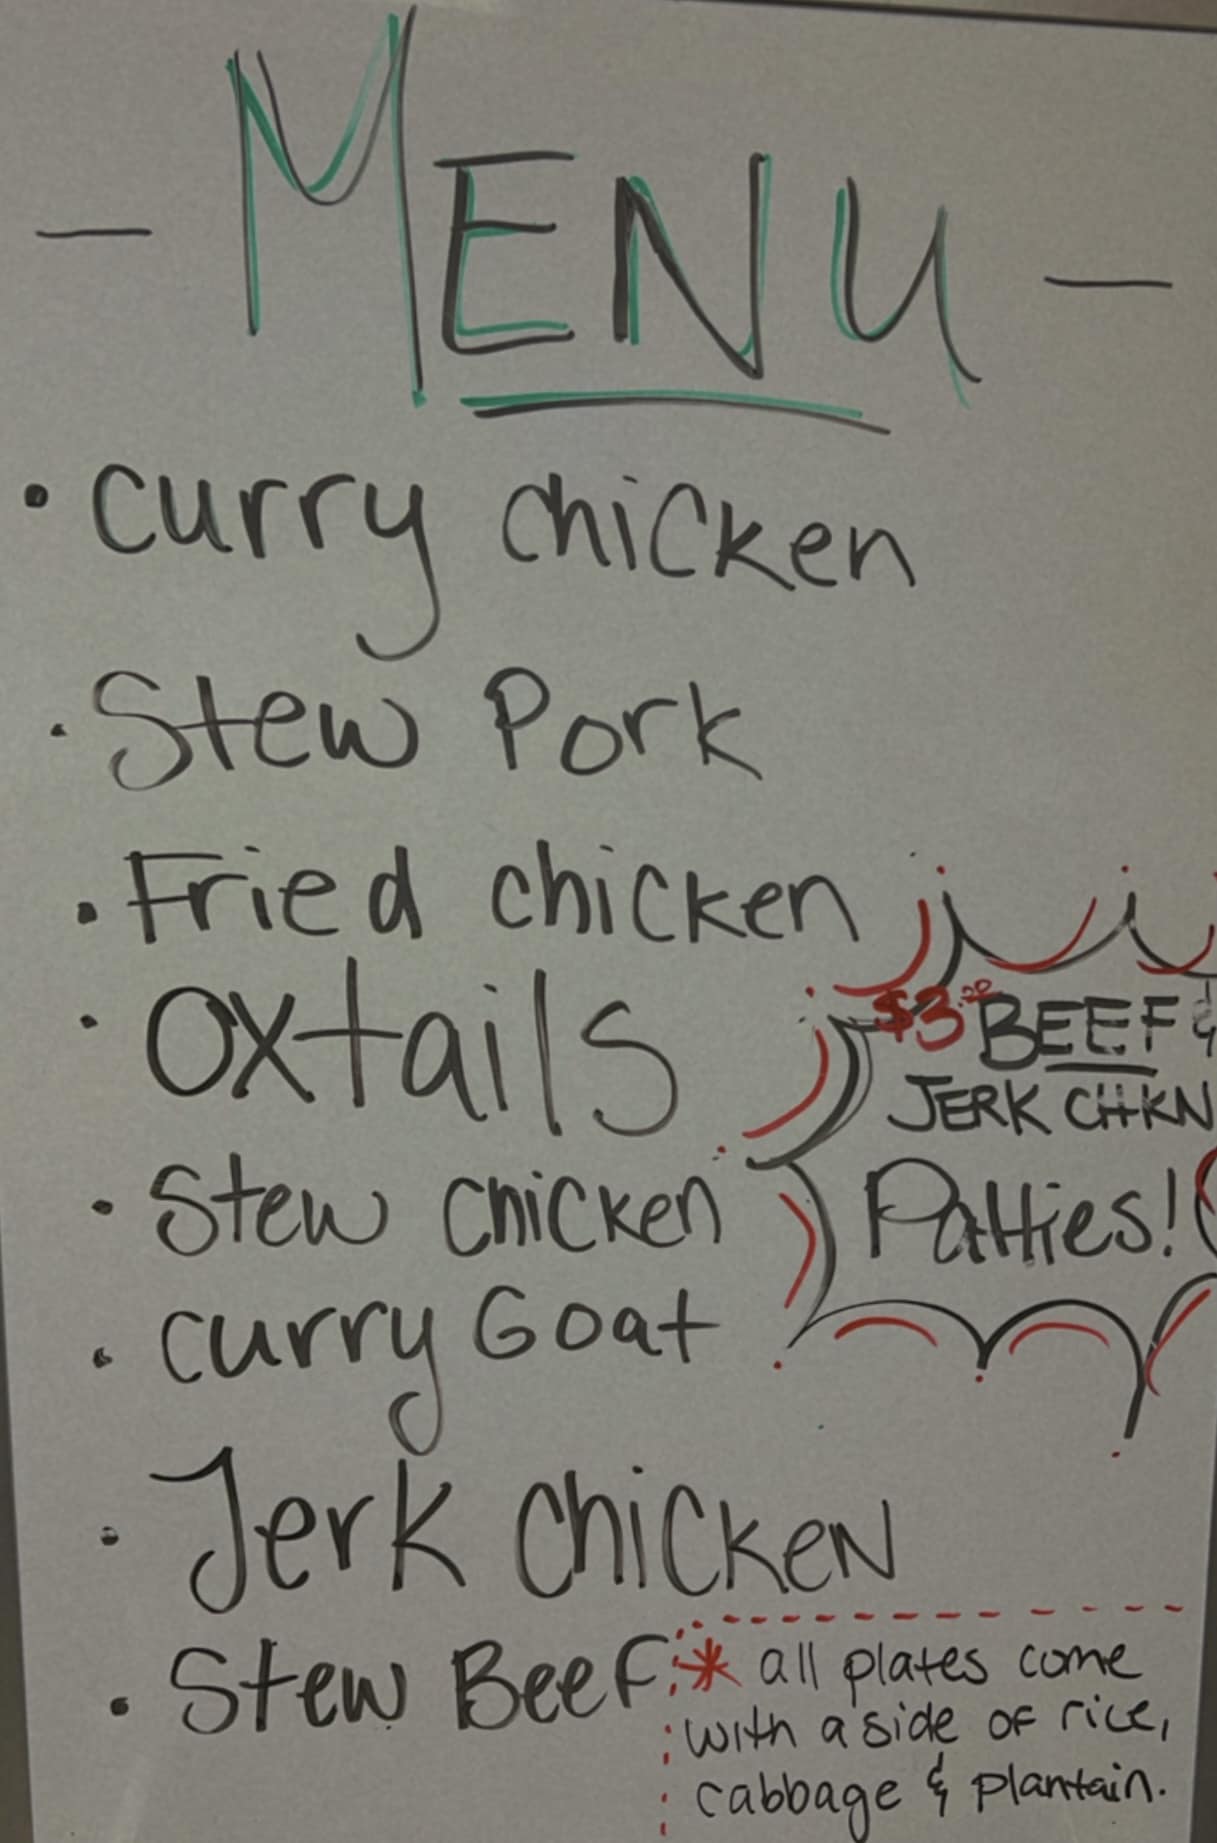 - MENU -
• curry chicken
• Stew Pork
• Fried chicken
• Oxtails
• Stew chicken
• curry Goat
• Jerk chicken
• Stew Beef
$3.00 BEEF &
JERK CHKN
Patties!
* all plates come
with a side of rice,
cabbage & plantain.